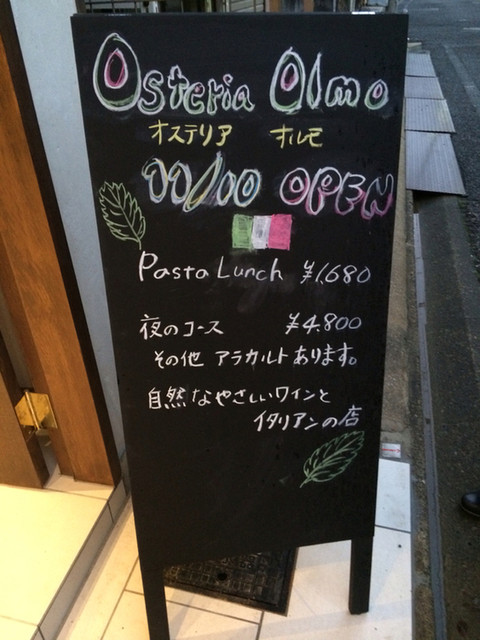 Osteria Olmo
オステリア オルモ
11/10 OPEN
Pasta Lunch ¥1,680
夜のコース ¥4.800
その他 アラカルトあります。
自然なやさしいワインと
イタリアンの店